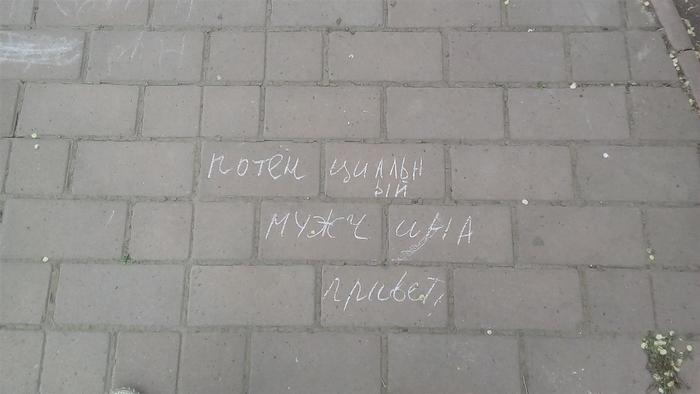 потен циалльн
ый
мужч ина
привет,